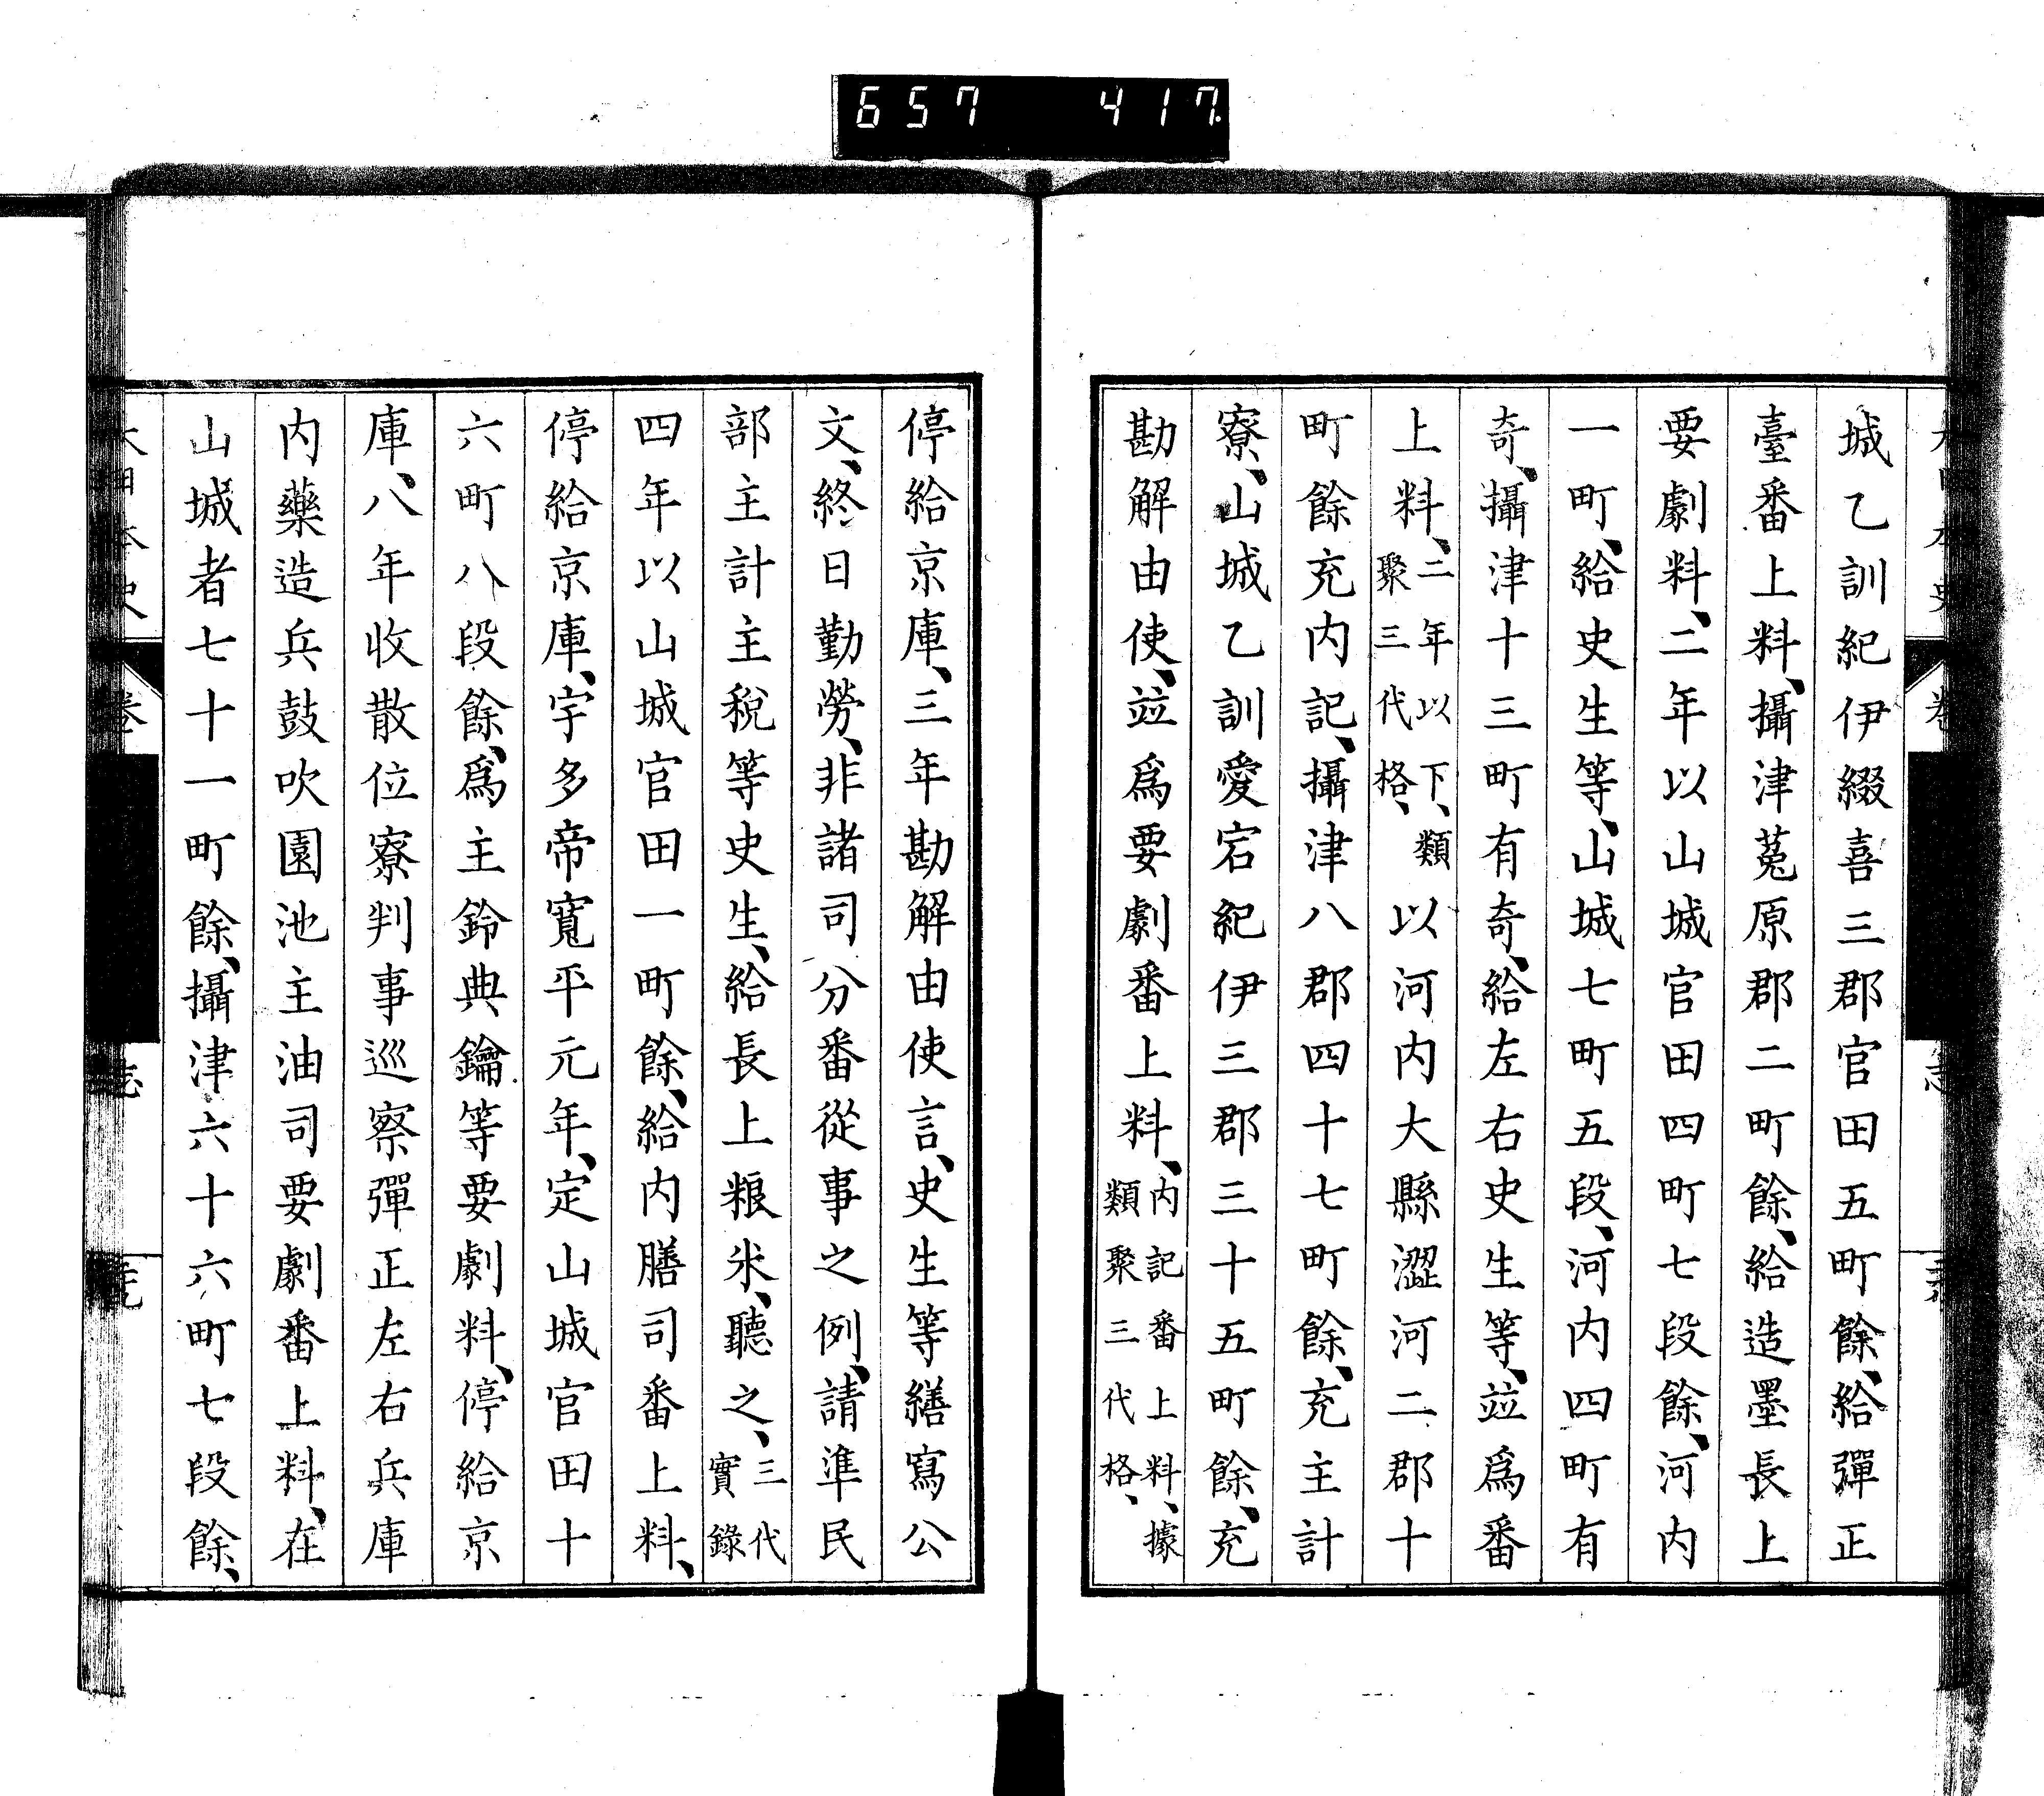 657 417
城乙訓紀伊綴喜三郡官田五町餘、給彈正
臺番上料、攝津菟原郡二町餘、給造墨長上
要劇料、二年以山城官田四町七段餘、河内
一町、給史生等、山城七町五段、河内四町有
奇、攝津十三町有奇、給左右史生等、竝爲番
上料、二年以下、類聚三代格、以河内大縣澀河二郡十
町餘充内記、攝津八郡四十七町餘、充主計
寮、山城乙訓愛宕紀伊三郡三十五町餘、充
勘解由使、竝爲要劇番上料、内記番上料、據類聚三代格、
停給京庫、三年勘解由使言、史生等繕寫公
文、終日勤勞、非諸司分番從事之例、請準民
部主計主稅等史生、給長上粮米、聽之、三代實錄
四年以山城官田一町餘、給内膳司番上料、
停給京庫、宇多帝寬平元年、定山城官田十
六町八段餘、爲主鈴典鑰等要劇料、停給京
庫、八年收散位寮判事巡察彈正左右兵庫
内藥造兵鼓吹園池主油司要劇番上料、在
山城者七十一町餘、攝津六十六町七段餘、